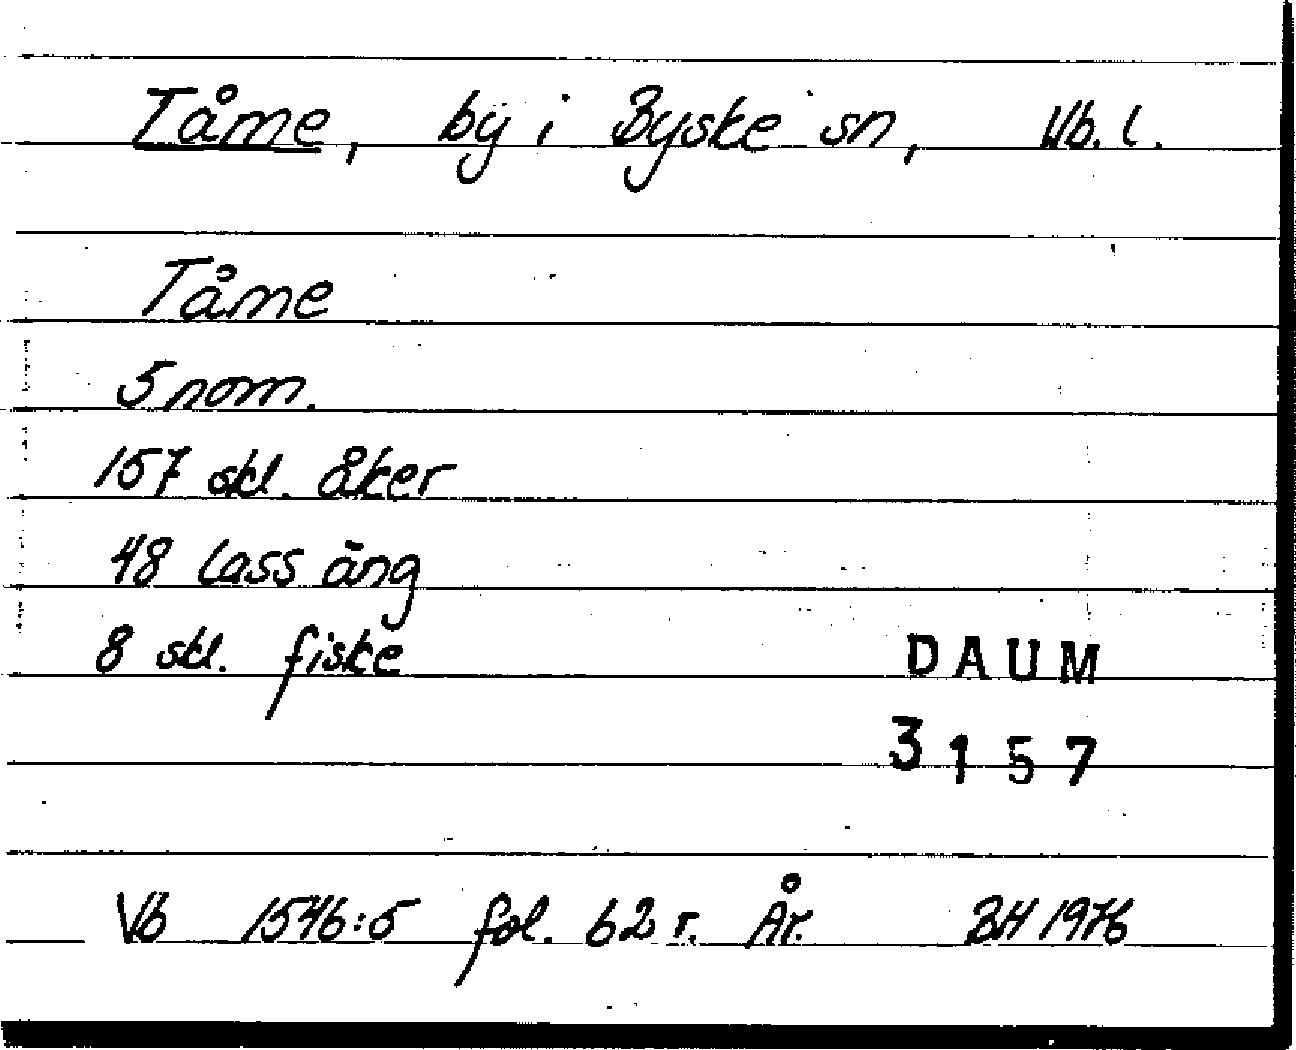 Tåme, by i Byske sn, Vb. l.
Tåme
5 nom.
157 skl. åker
48 lass äng
8 skl. fiske
DAUM
3157
Vb 1546:5 fol. 62 r. År. BH 1976